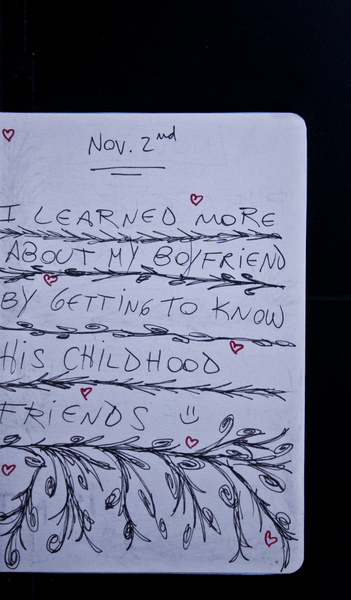 Nov. 2nd
I LEARNED MORE
ABOUT MY BOYFRIEND
BY GETTING TO KNOW
HIS CHILDHOOD
FRIENDS